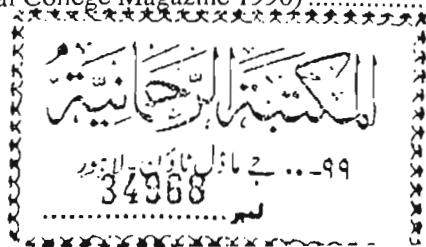 College Magazine 1990)..................
المكتبة الرحمانية
۹۹ - .. جے ماڈل ٹاؤن - لاہور
34968
نمبر......................